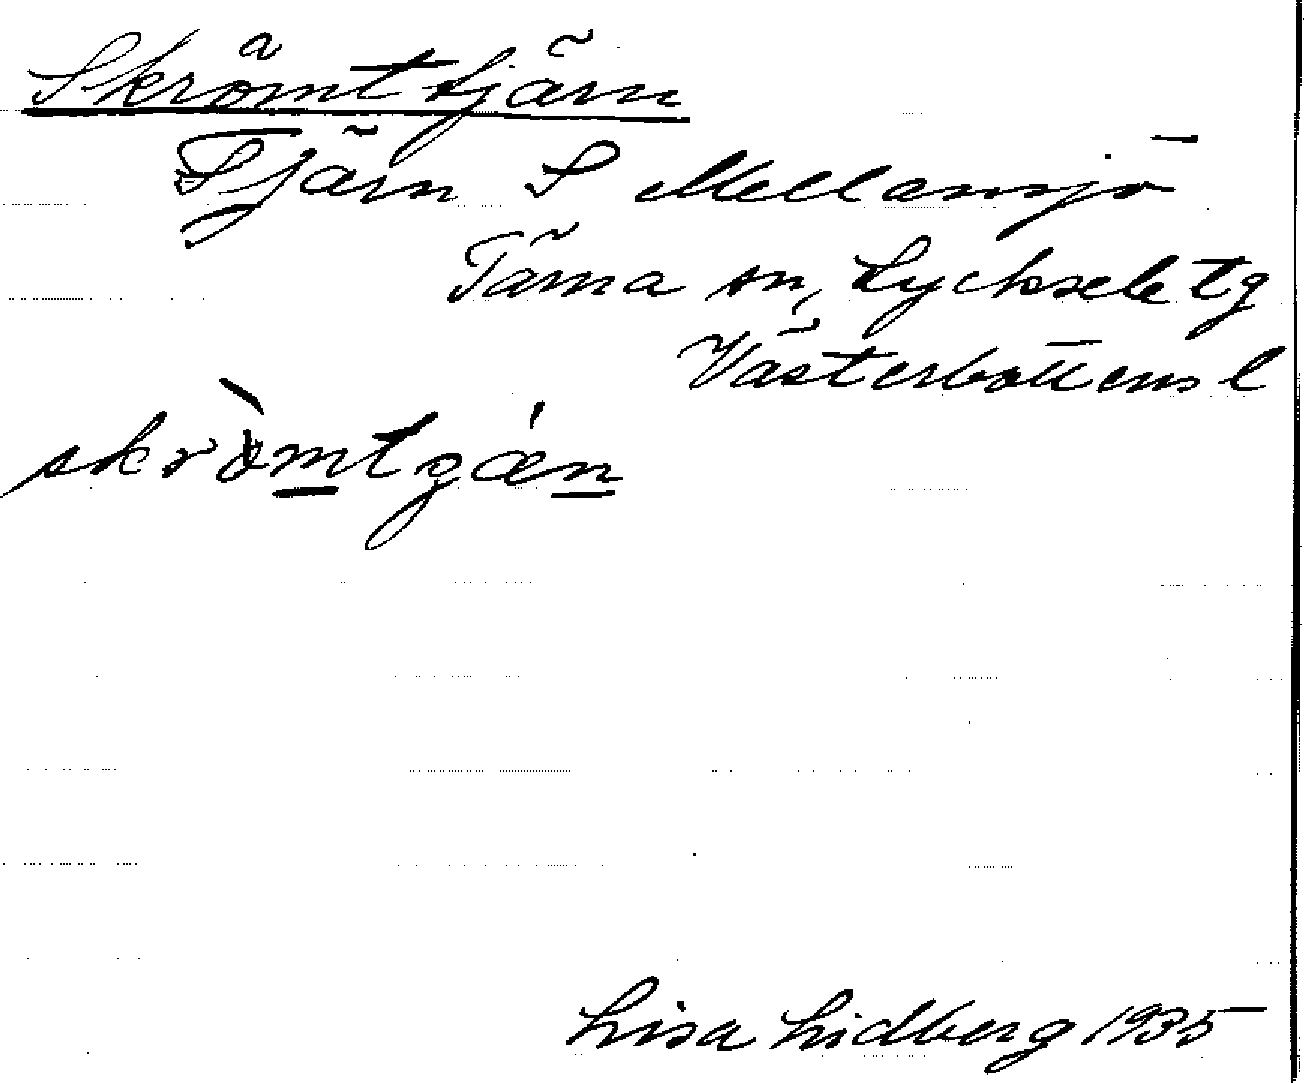 Skrömttjärn
Tjärn S Mellansjö
Tärna sn, Lycksele tg
Västerbottens l
skròmtgǽn
Lisa Lidberg 1935